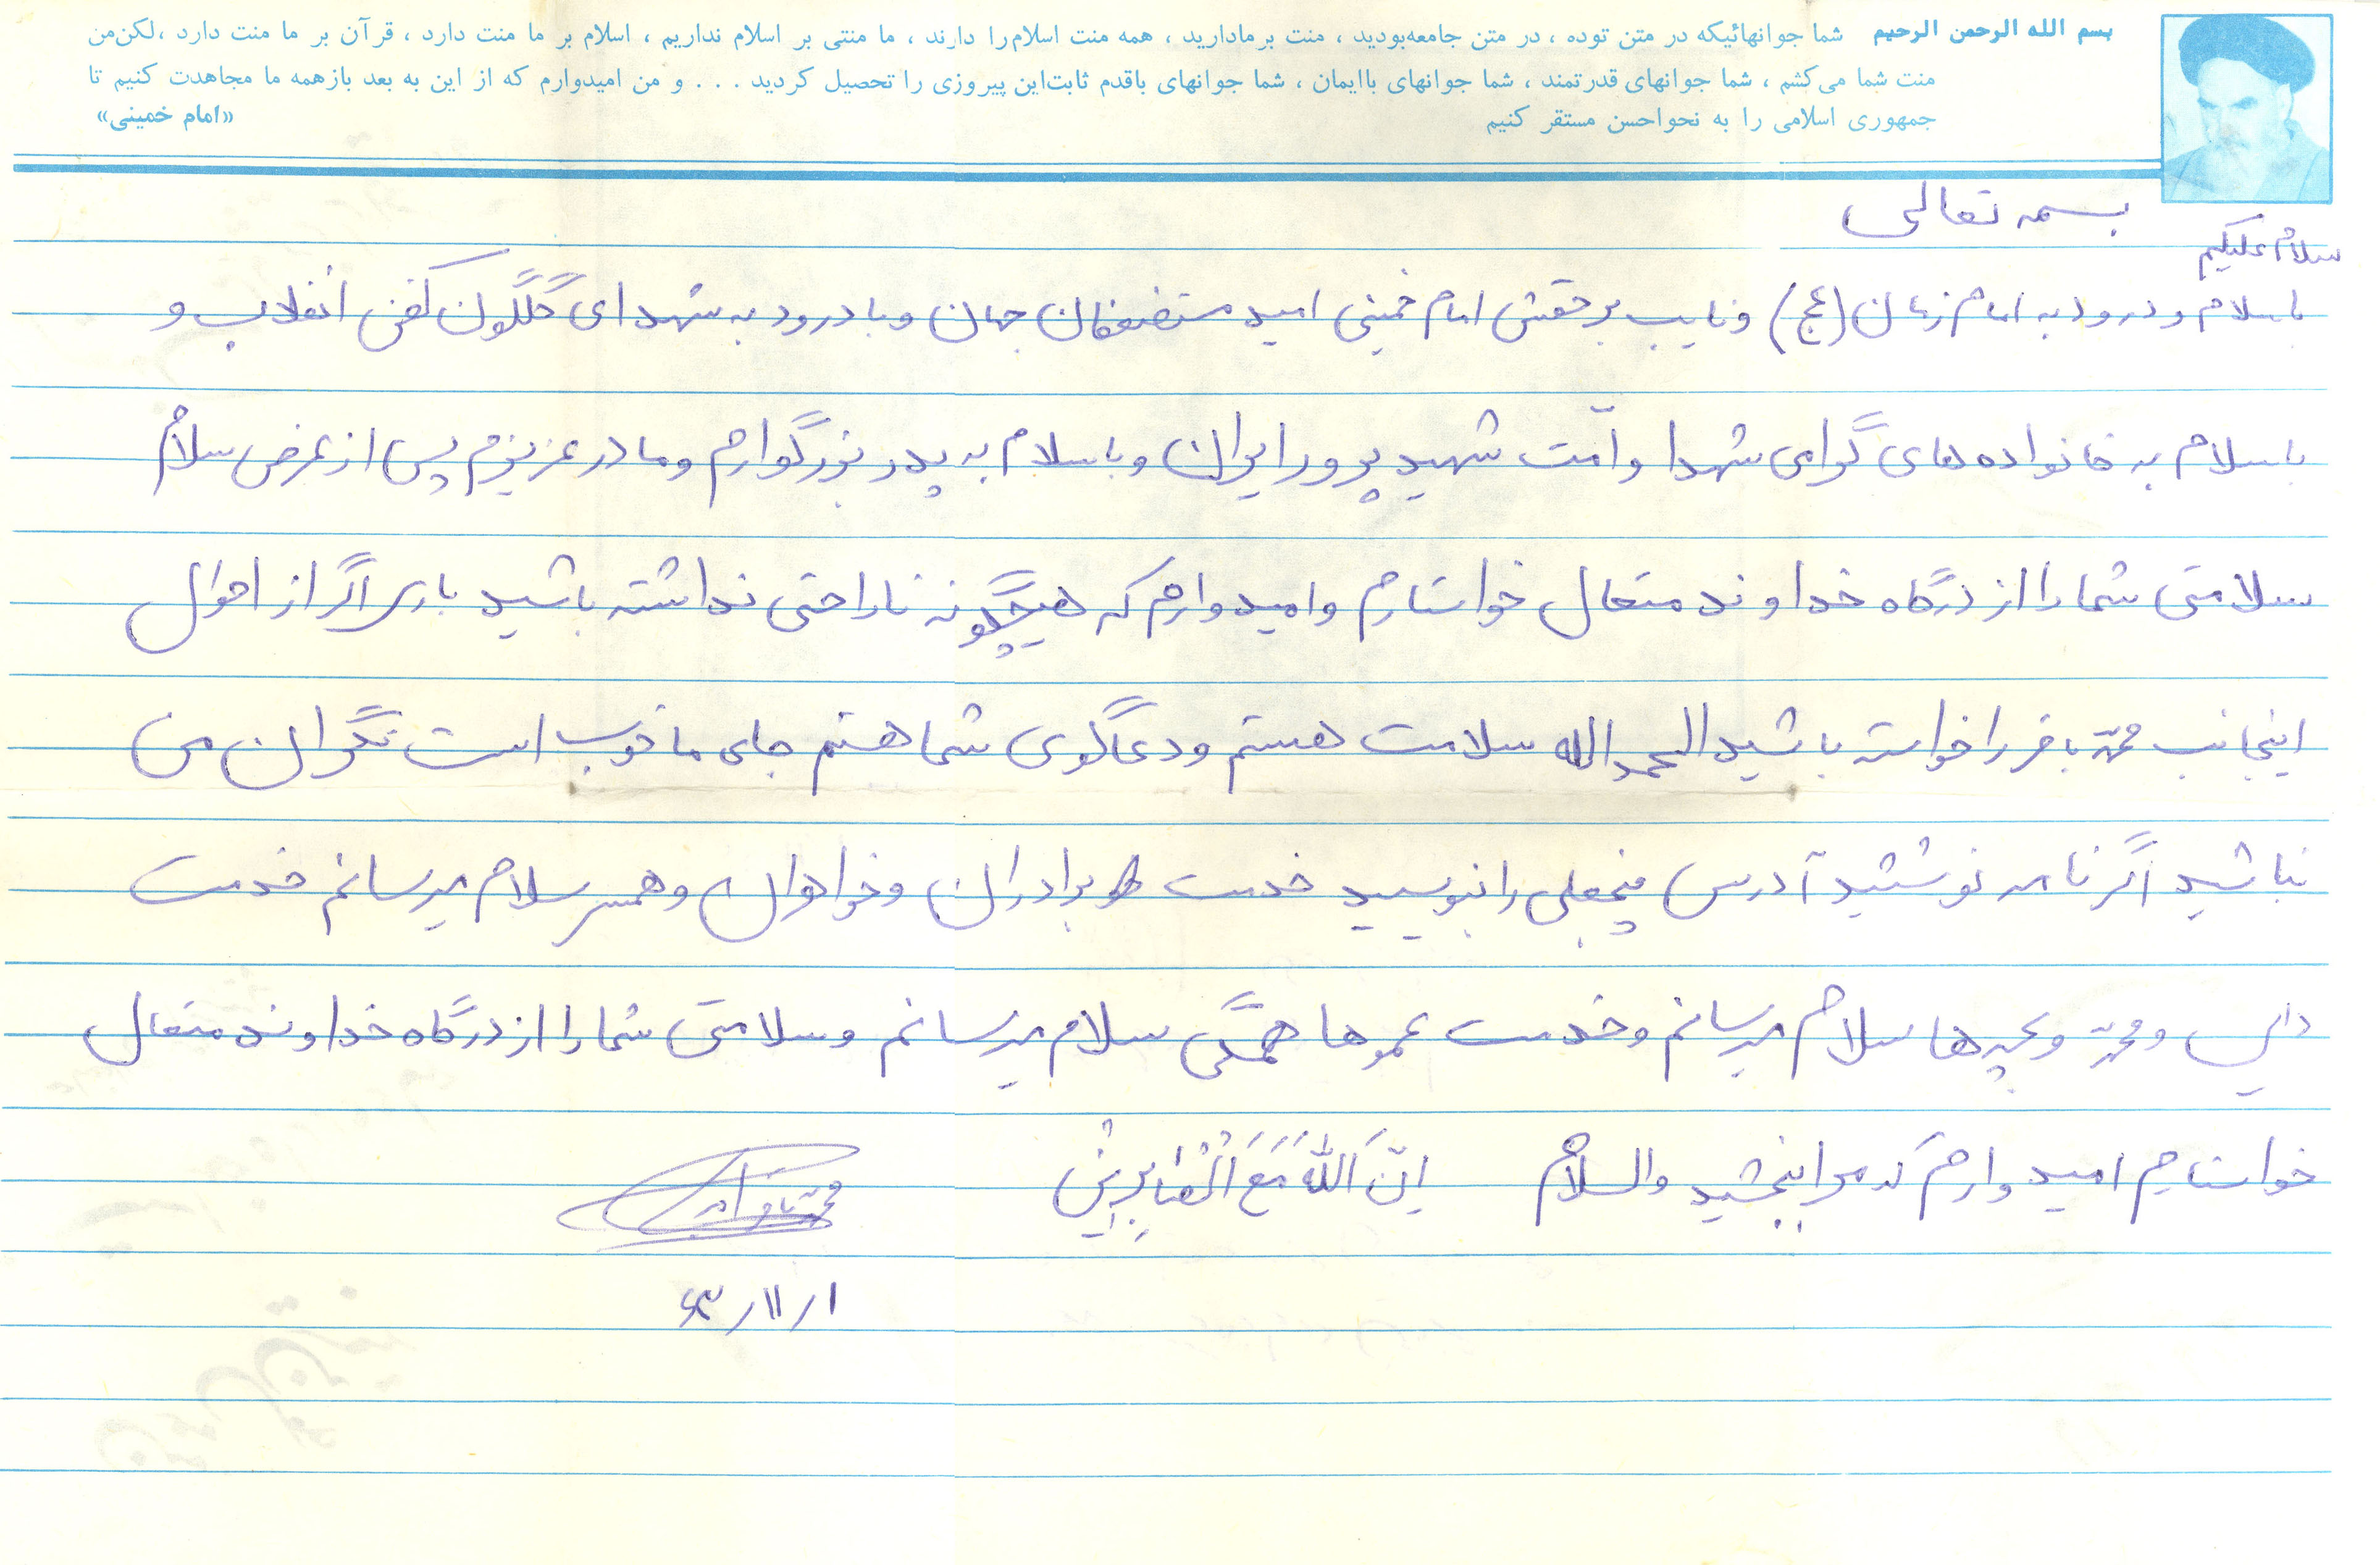 بسم الله الرحمن الرحیم شما جوانهائیکه در متن توده ، در متن جامعه‌بودید ، منت برمادارید ، همه منت اسلام‌را دارند ، ما منتی بر اسلام نداریم ، اسلام بر ما منت دارد ، قرآن بر ما منت دارد ،لکن‌من
منت شما می‌کشم ، شما جوانهای قدرتمند ، شما جوانهای باایمان ، شما جوانهای باقدم ثابت‌این پیروزی را تحصیل کردید . . . و من امیدوارم که از این به بعد بازهمه ما مجاهدت کنیم تا
جمهوری اسلامی را به نحواحسن مستقر کنیم «امام خمینی»
بسمه تعالی
سلام علیکم
با سلام و درود به امام زمان (عج) و نایب برحقش امام خمینی امید مستضعفان جهان و با درود به شهدای گلگون کفن انقلاب و
با سلام به خانواده های گرامی شهدا و امّت شهید پرور ایران و با سلام به پدر بزرگوارم و مادر عزیزم پس از عرض سلام
سلامتی شما را از درگاه خداوند متعال خواستارم و امیدوارم که هیچگونه ناراحتی نداشته باشید باری اگر از احوال
اینجانب محمّد باقر را خواسته باشید الحمدالله سلامت هستم و دعاگوی شما هستم جای ما خوب است نگران من
نباشید اگر نامه نوشتید آدرس را بنویسید خدمت برادران و خواهران و همسر سلام میرسانم خدمت
دایی و محمّد و بچه ها سلام میرسانم و خدمت عموها همگی سلام میرسانم و سلامتی شما را از درگاه خداوند متعال
خواستارم امیدوارم که مرا ببخشید والسلام اِنّ اَللهَ مَعَ اَلْصّابِرینْ
محمّد باقر
۱/ ۱۱/ ۶۳